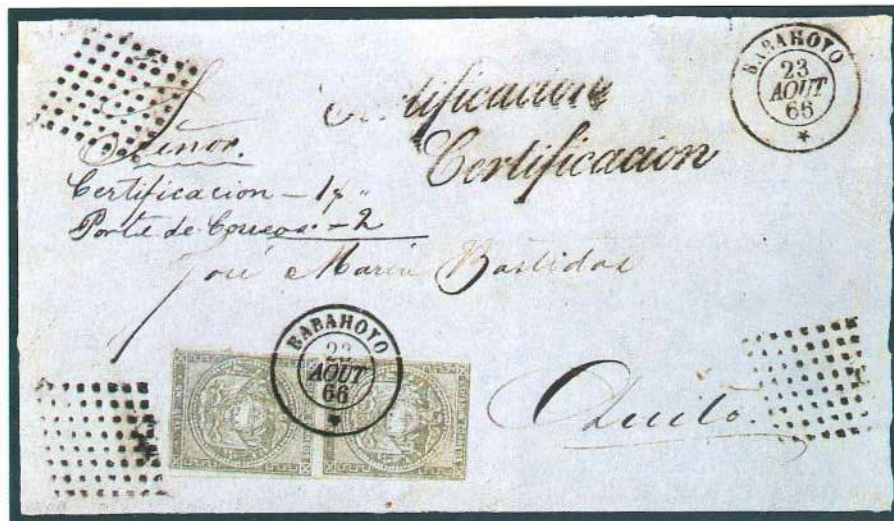 BABAHOYO
23
AOUT
66
*
Certificacion
Certificacion
Señor.
Certificacion – 1
Porte de Correos. – 2
José Maria Bastidas
BABAHOYO
23
AOUT
66
*
Quito.